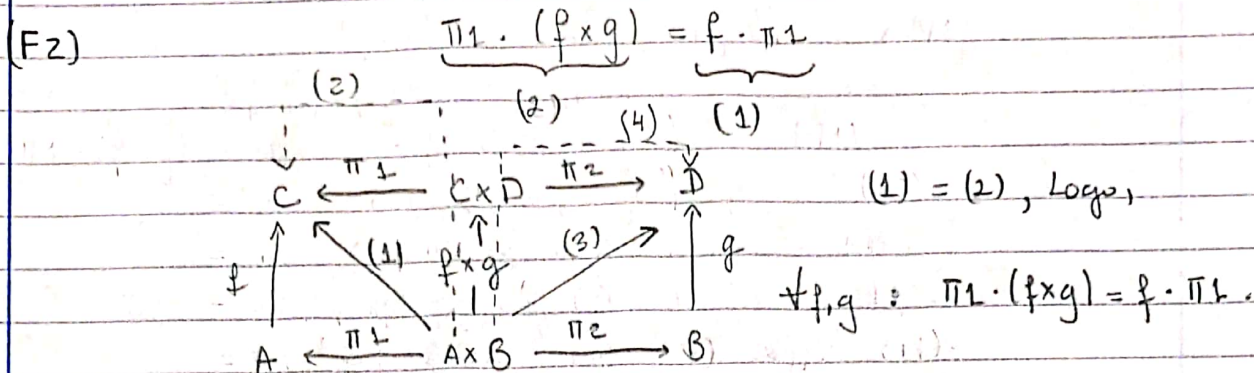 (F2) π1 · (f × g) = f · π1
(2) (2) (4) (1)
C π1 C × D π2 D (1) = (2), Logo,
f (1) f × g (3) g
∀f,g : π1 · (f×g) = f · π1.
A π1 A × B π2 B